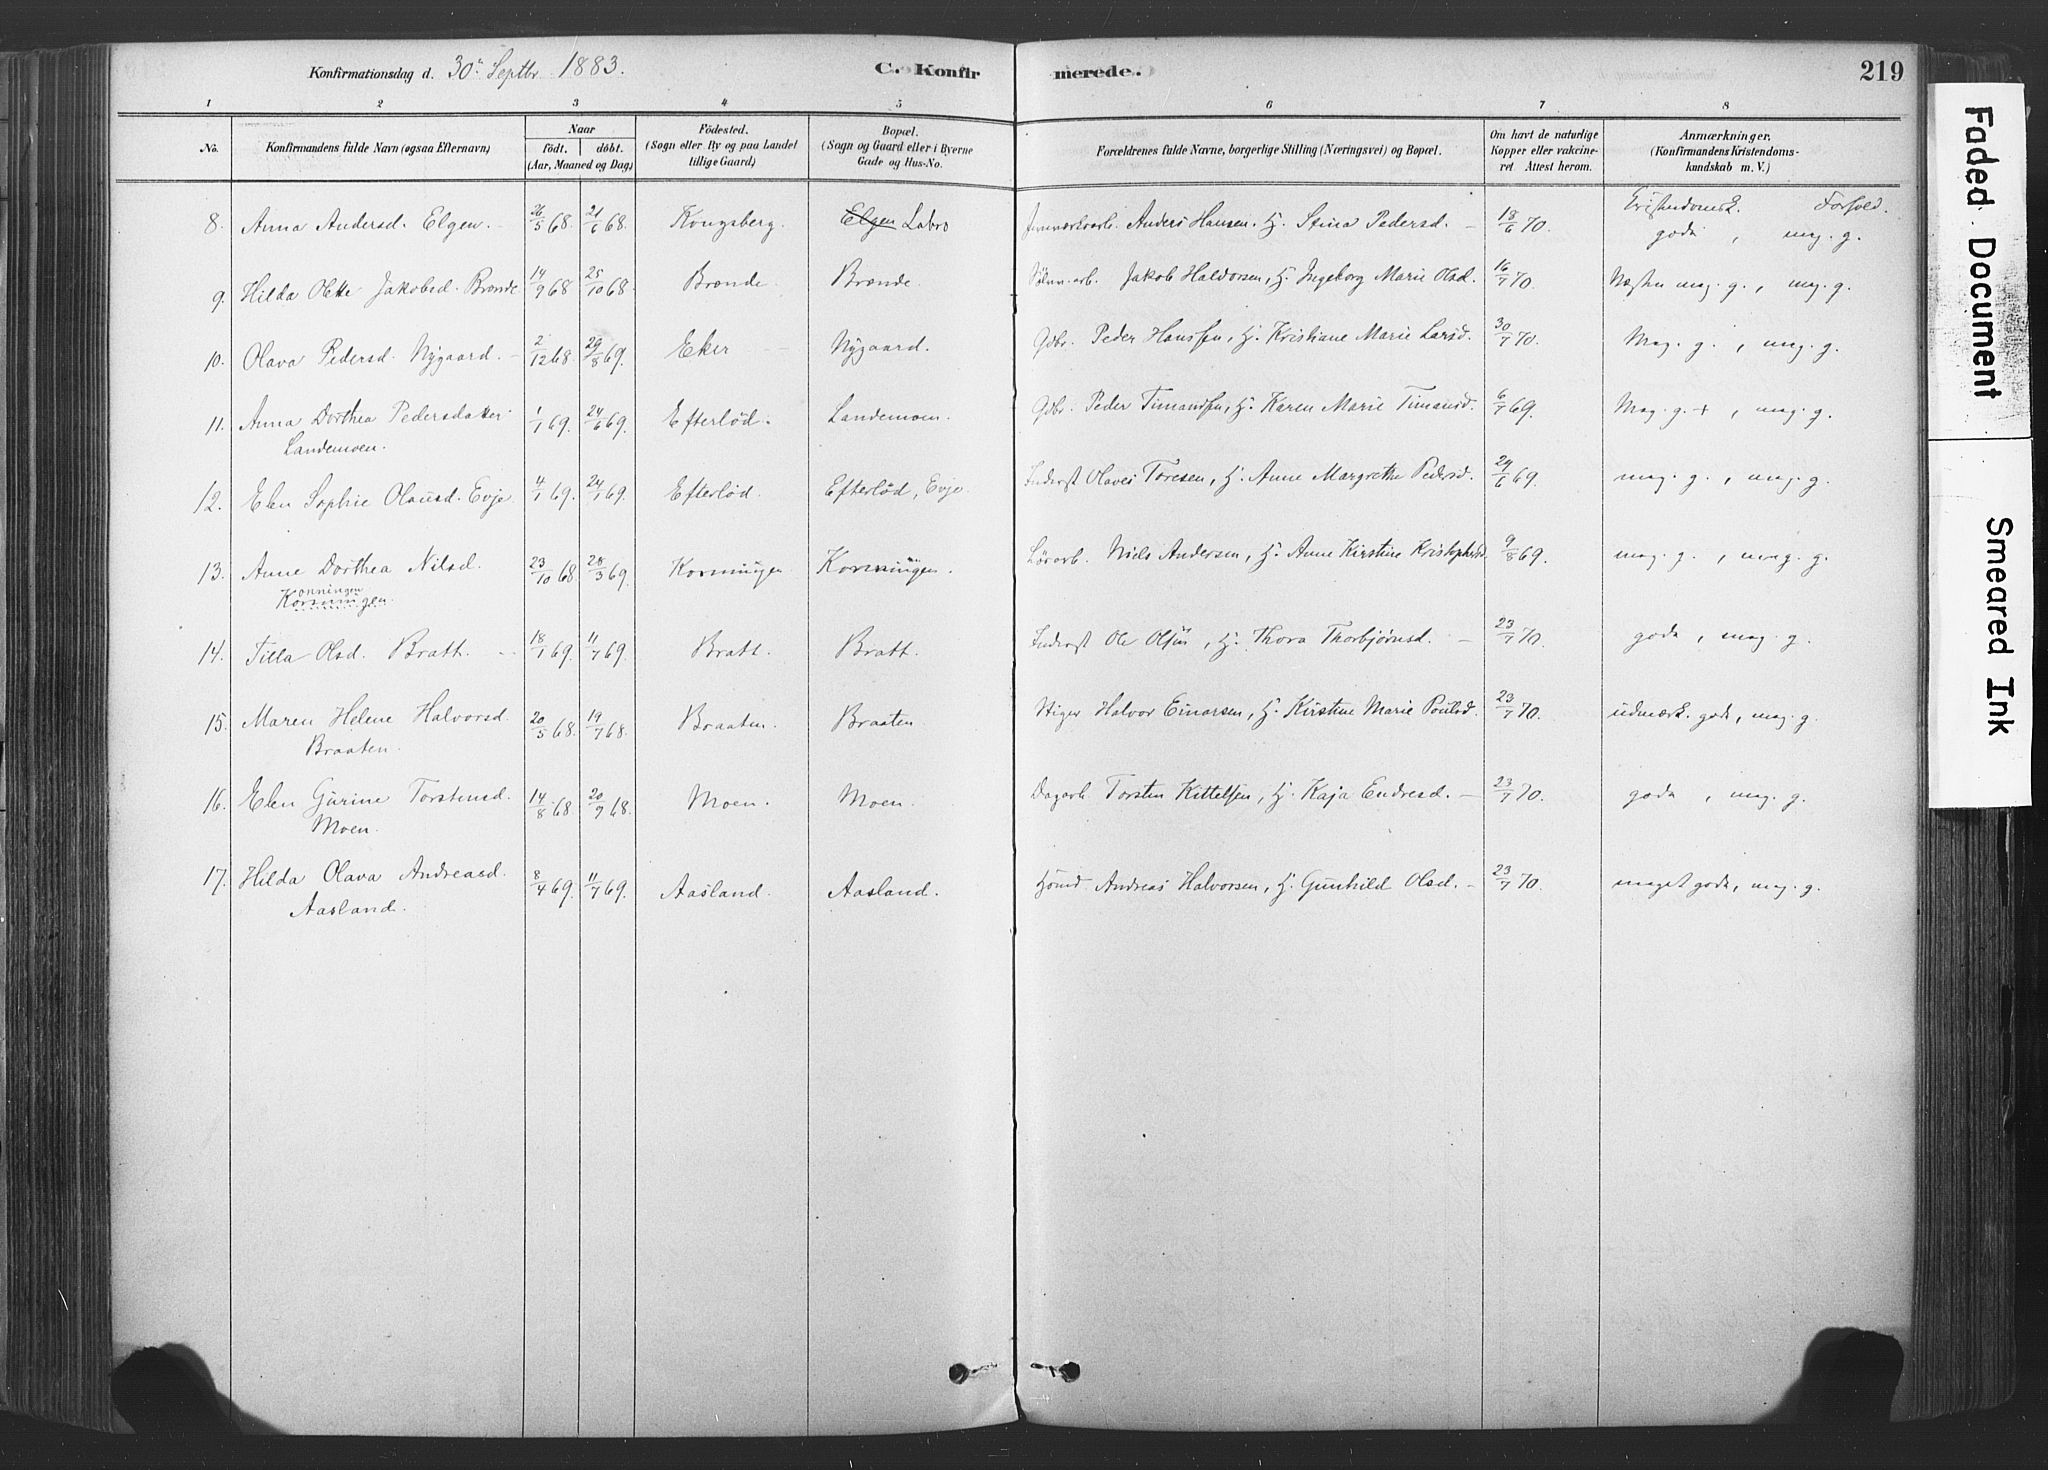 Konfirmationsdag d. 30' Septbr 1883. C. Konfirmerede. 219
1 2 3 4 5 6 7 8
No. Konfirmandens fulde Navn (ogsaa Efternavn) Naar født. døbt. (Aar, Maaned og Dag) Fødested. (Sogn eller By og paa Landet tillige Gaard) Bopæl. (Sogn og Gaard eller i Byerne Gade og Hus-No. Forældrenes fulde Navne, borgerlige Stilling (Næringsvei) og Bopæl. Om havt de naturlige Kopper eller vakcineret Attest herom. Anmærkninger. (Konfirmandens Kristendomskundskab m. V.)
Kristendomsk. Forhold.
8. Anna Andersd. Elgen. 26/5 68 21/6 68. Kongsberg. Elgen Labro Anders Hansen. Hj. Stina Pedersd. 18/6 70. goda, meg. g.
9. Hilda Olette Jakobsd. Brønde 14/9 68 25/10 68. Brønde Brønde. Jakob Haldorsen, Hj. Ingeborg Marie Olsd. 16/7 70. Næsten meg. g., meg. g.
10. Olava Pedersd. Nygaard. 2/12 68 29/8 69. Eker Nygaard. Gdbr. Peder Hanssen, Hj. Kristiane Marie Larsd. 30/7 70. Meg. g., meg. g.
11. Anna Dorthea Pedersdatter 1/1 69. 24/6 69. Efterlød. Landemoen. Gdbr. Peder Timandsen, Hj. Karen Marie Timansd. 6/7 69. Meg. g. +, meg. g.
Landemoen.
12. Elen Sophie Olausd. Evje. 4/1 69. 24/1 69. Efterlød. Efterlød, Evje. Inderst Olaves Toresen, Hj. Anne Margrethe Pedersd. 24/6 69. meg. g., meg. g.
13. Anne Dorthea Nilsd. 23/10 68. 28/3 69. Korningen Korningen. Niels Andersen, Hj. Anne Kirstine Kristophersd. 9/8 69. meg. g., meg. g.
onningen
Korningen.
14. Tilla Olsd. Bratt. 18/1 69. 11/7 69. Bratt. Bratt. Inderst Ole Olsen, Hj. Thora Thorbjørnsd. 23/7 70. goda, meg. g.
15. Maren Helene Halvorsd. 20/5 68. 19/7 68. Braaten. Braaten Stiger Halvor Einarsen, Hj. Kirstine Marie Poulsd. 23/7 70. udmærk. goda, meg. g.
Braaten.
16. Elen Gurine Torstensd. 14/8 68. 20/9 68. Moen. Moen. Dagarb. Torsten Kittelsen, Hj. Kaja Endresd. 23/7 70. goda, meg. g.
Moen.
17. Hilda Olava Andreasd. 8/4 69. 11/7 69. Aasland. Aasland. Andreas Halvorsen, Hj. Gunhild Olsd. 23/7 70. meget goda, meg. g.
Aasland.
Faded Document
Smeared Ink